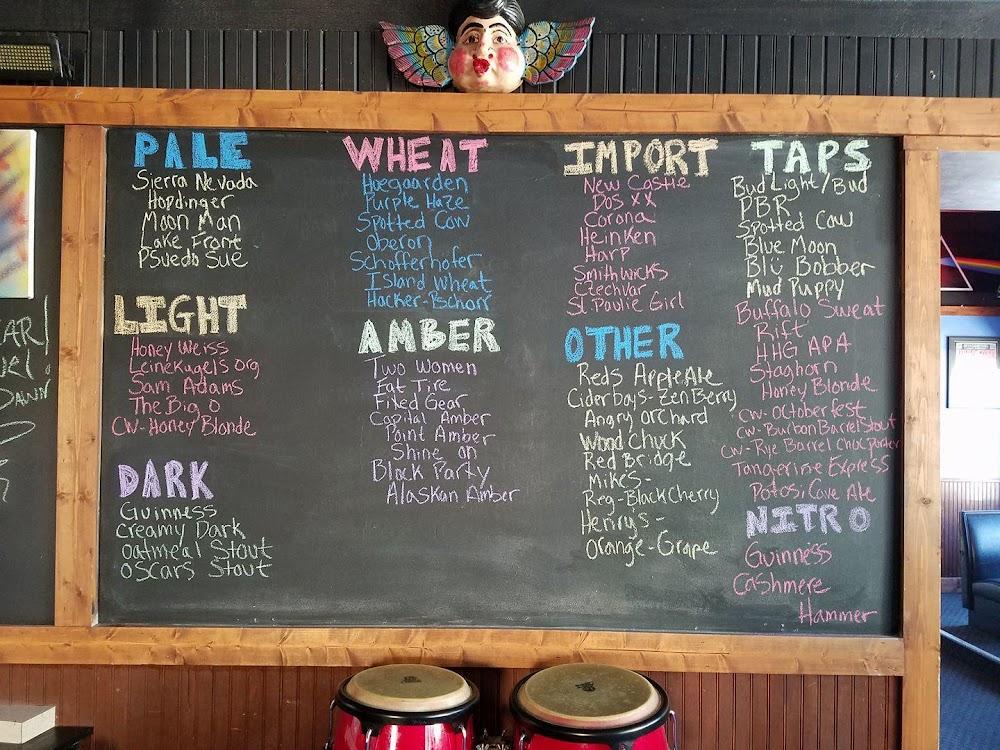 PALE
Sierra Nevada
Hopdinger
Moon Man
Lake Front
Psuedo Sue
LIGHT
Honey Weiss
Leinekugels Org
Sam Adams
The Big O
CW-Honey Blonde
DARK
Guinness
Creamy Dark
Oatmeal Stout
Oscars Stout
WHEAT
Hoegaarden
Purple Haze
Spotted Cow
Oberon
Schofferhofer
Island Wheat
Hacker-Pschorr
AMBER
Two Women
Fat Tire
Fixed Gear
Capital Amber
Point Amber
Shine on
Block Party
Alaskan Amber
IMPORT
New Castle
Dos XX
Corona
Heinken
Harp
Smithwicks
Czechvar
St. Paulie Girl
OTHER
Reds Apple Ale
Ciderboys-Zen Berry
Angry Orchard
Wood Chuck
Red Bridge
Mike's-
Reg-Black Cherry
Henry's-
Orange-Grape
TAPS
Bud Light/Bud
PBR
Spotted Cow
Blue Moon
Blü Bobber
Mud Puppy
Buffalo Sweat
Rift
HHG APA
Staghorn
Honey Blonde
CW-Octoberfest
CW-Burbon Barrel Stout
CW-Rye Barrel Choc Porter
Tangerine Express
Potosi Cave Ale
NITRO
Guinness
Cashmere
Hammer